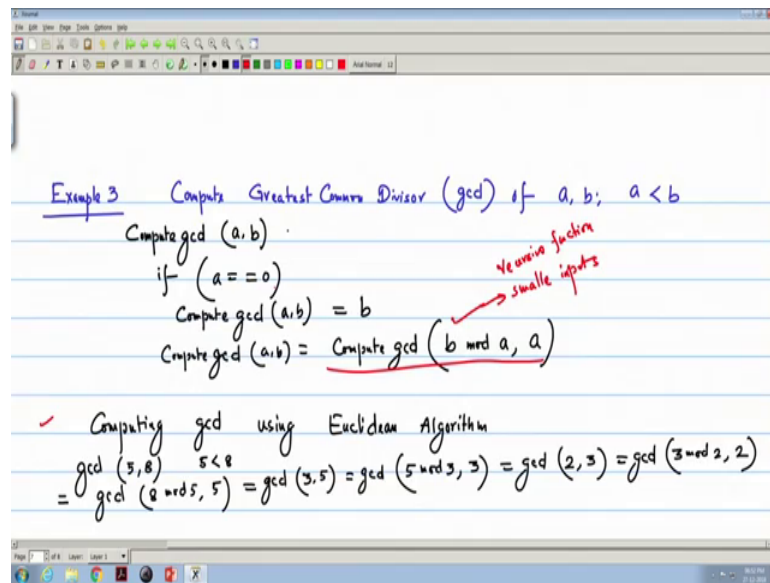 Journal
File Edit View Page Tools Options Help
Arial Normal 12
Example 3 Compute Greatest Common Divisor (gcd) of a, b; a < b
Compute gcd (a,b)
if (a == 0)
Compute gcd (a,b) = b
Compute gcd (a,b) = Compute gcd (b mod a, a)
recursive fuction
smalle inputs
Computing gcd using Euclidean Algorithm
gcd (5,8) 5<8
= gcd (8 mod 5, 5) = gcd (3,5) = gcd (5 mod 3, 3) = gcd (2,3) = gcd (3 mod 2, 2)
Page 7 of 8 Layer: Layer 1